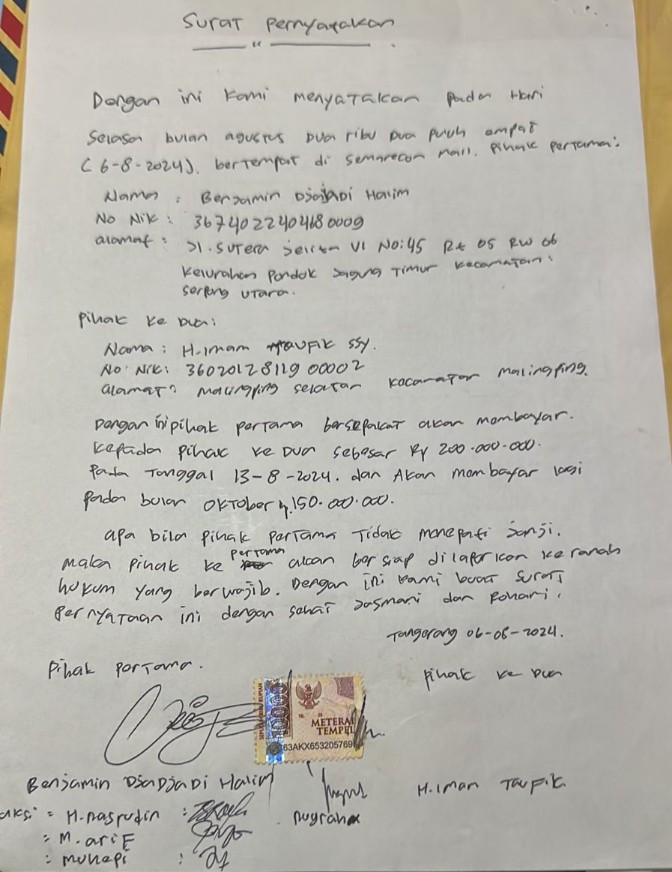 Surat Pernyatakan
Dengan ini kami menyatakan pada Hari
Selasa bulan agustus Dua ribu Dua puluh empat
(6-8-2024). bertempat di semarecon mall. pihak pertama:
Nama : Benjamin Djajadi Halim
No Nik : 3674022404680009
alamat : Jl. Sutera Jelita VI No:45 Rt 05 RW 06
Kelurahan Pondok Jagung Timur Kecamatan:
Serpong Utara.
Pihak ke Dua:
Nama : H.Imam Taufik SSy.
No Nik: 3602012811900002
alamat: Malingping selatan Kecamatan Malingping.
Dengan ini pihak pertama bersepakat akan membayar.
kepada pihak ke Dua sebesar Rp 200.000.000.
Pada Tanggal 13-8-2024. dan Akan membayar lagi
pada bulan OKtober Rp.150.000.000.
apa bila pihak perTama Tidak menepati Janji.
maka pihak ke pertama akan bersiap dilaporkan ke ranah
hukum yang berwajib. Dengan ini kami buat Surat
Pernyataan ini dengan sehat Jasmani dan Rohani.
Tangerang 06-08-2024.
Pihak Pertama.
pihak ke Dua
10000
METERAI
TEMPEL
63AKX653205769
Benjamin DjaDjaDi Halim
H.Iman Taufik
aksi : H.nasrudin :
nugraha
: M. ariE
: muhapi :